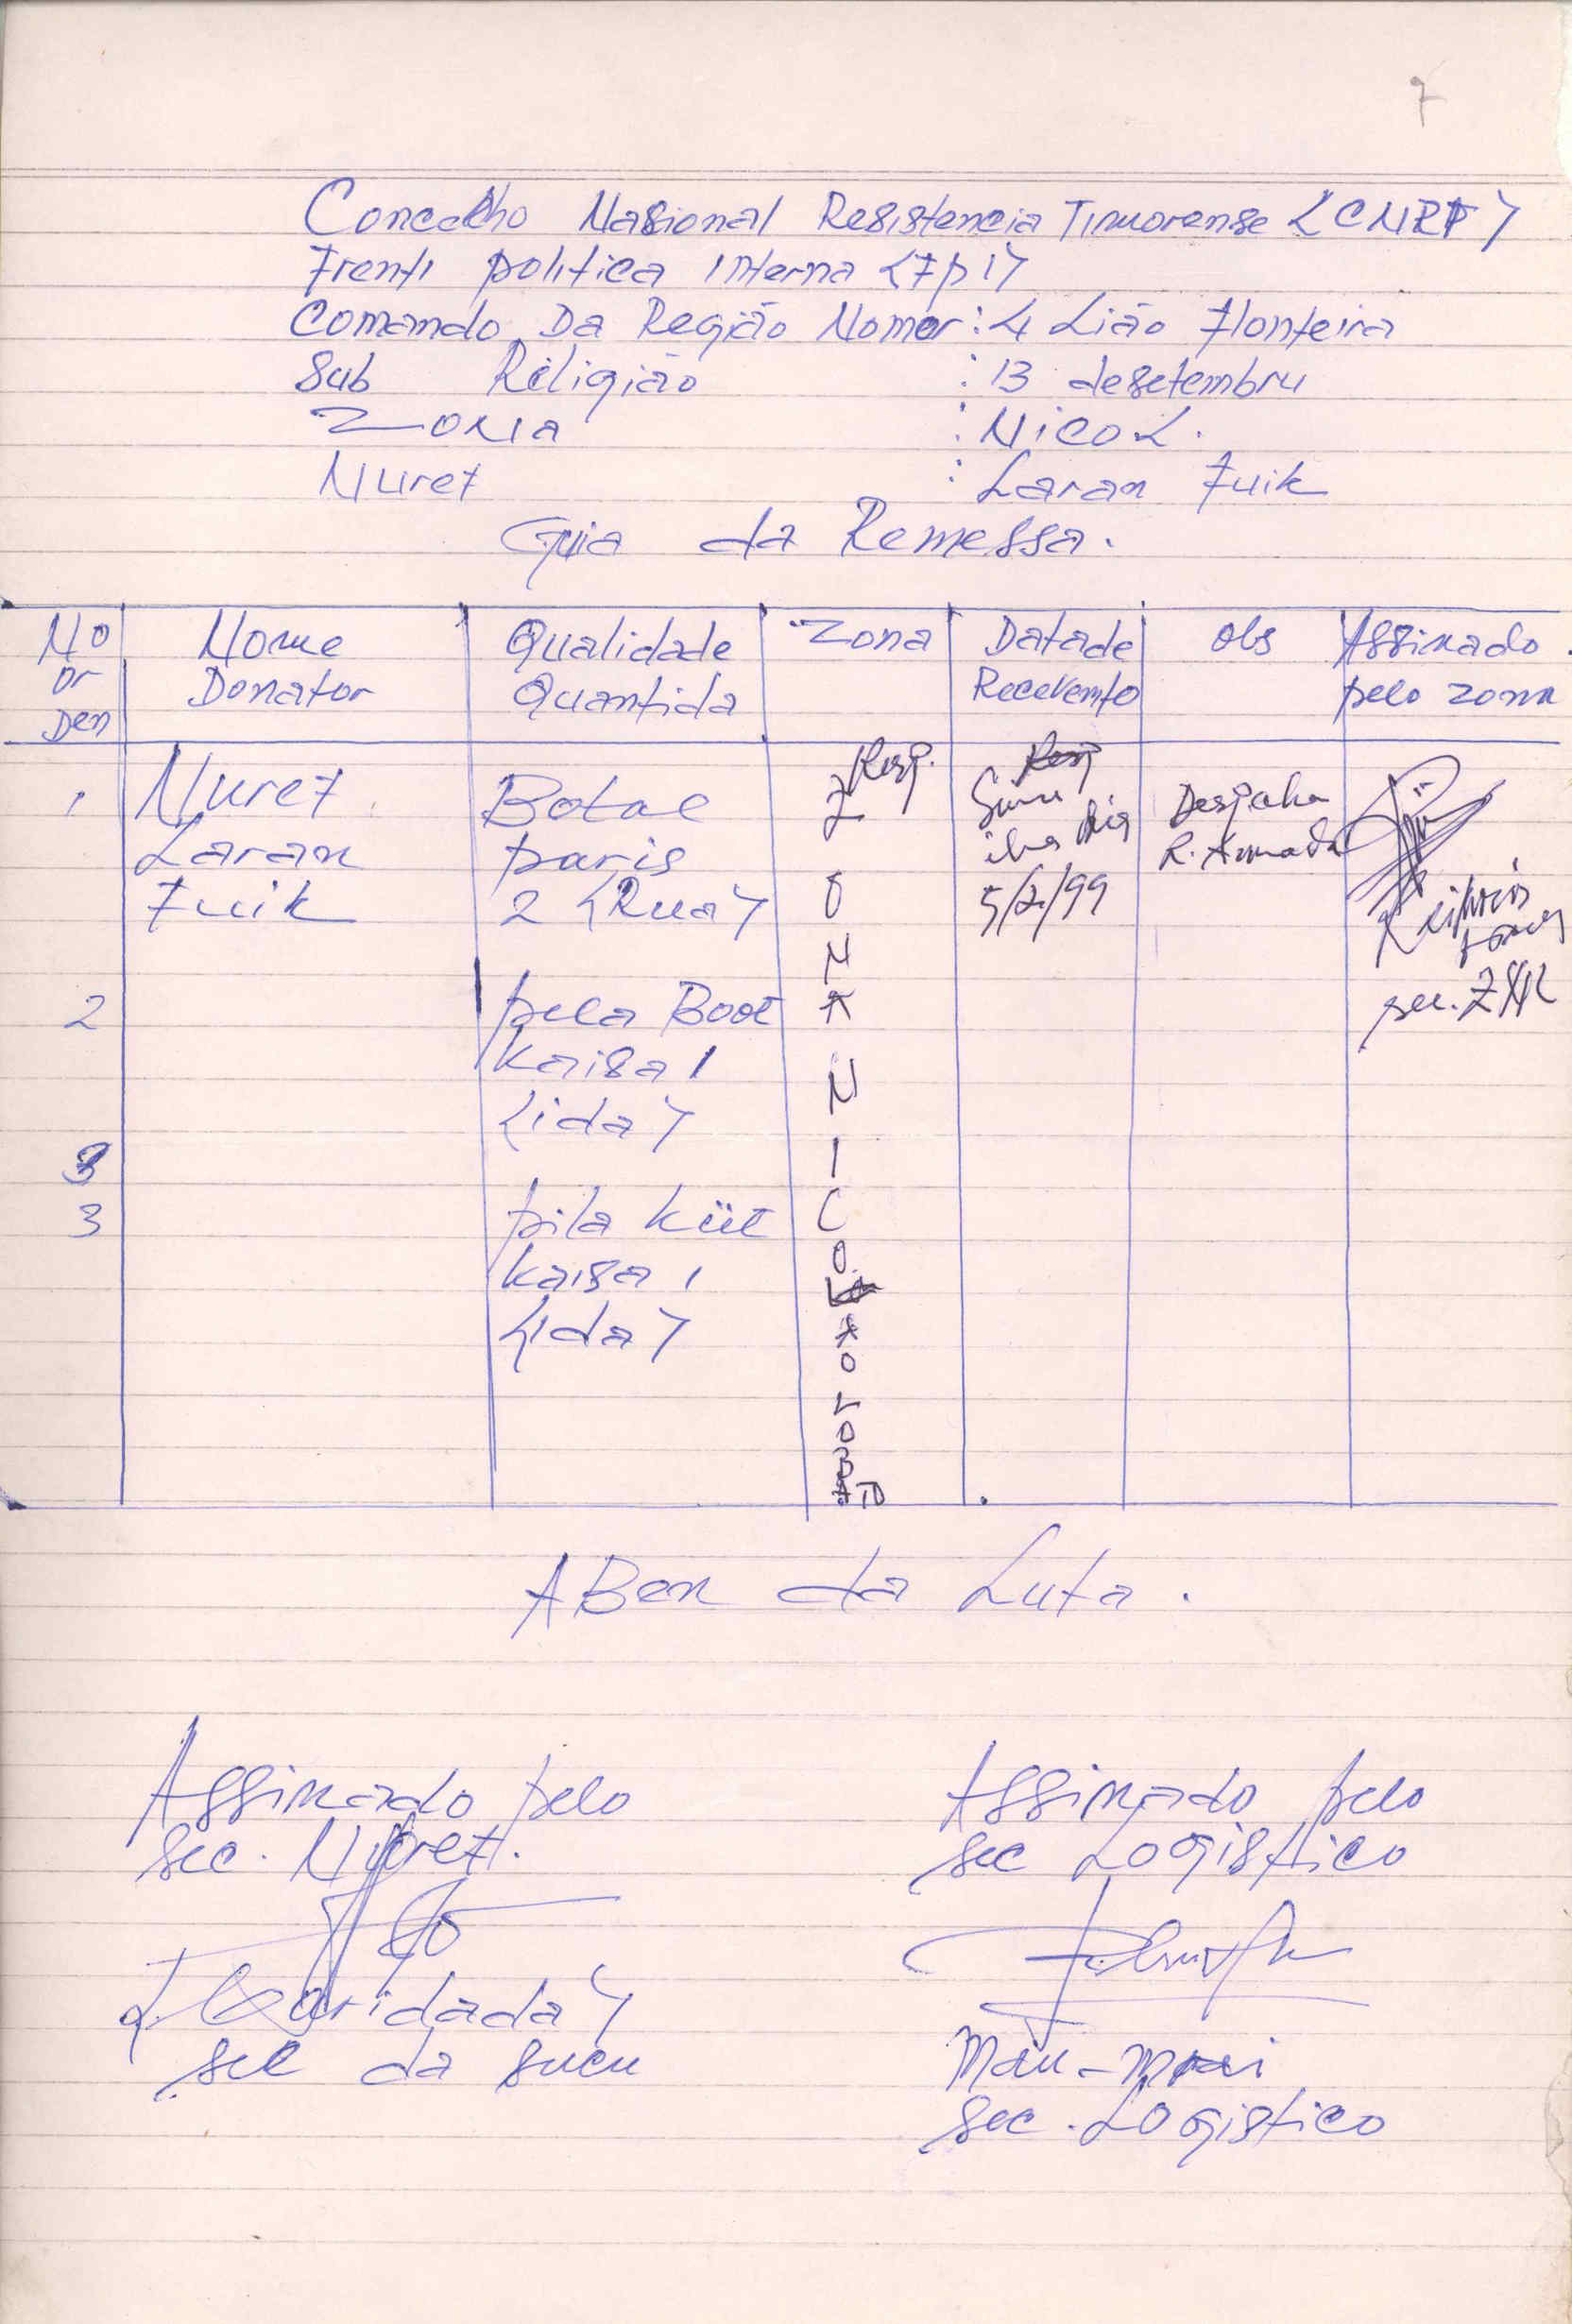 7
Concelho Nasional Resistencia Timorense (CNRT)
Frenti politica Interna (FPI)
Comando Da Região Nomor : 4 Lião Flonteira
Sub Religião : 13 desetembru
Zona : Nico L.
Nuref : Laran Fuik
Guia da Remessa.
No or Den | Nome Donator | Qualidade Quantida | Zona | Data de Recevemto | obs | Assinado pelo zona
1 Nuref Botae Resp. Simu Despaha
Laran paris Z iha dia R. Armada
Fuik 2 (Rua) O 5/2/99
N
2 pela Boot A sec. ZNL
kaisa 1 N
(ida) I
3 pila kiit C
kaisa 1 O
(ida)
A Ben da Luta.
Assinado pelo
sec. Nuref.
(Caridada)
sec da sucu
Assinado pelo
sec Logistico
Mau-Mori
sec. Logistico